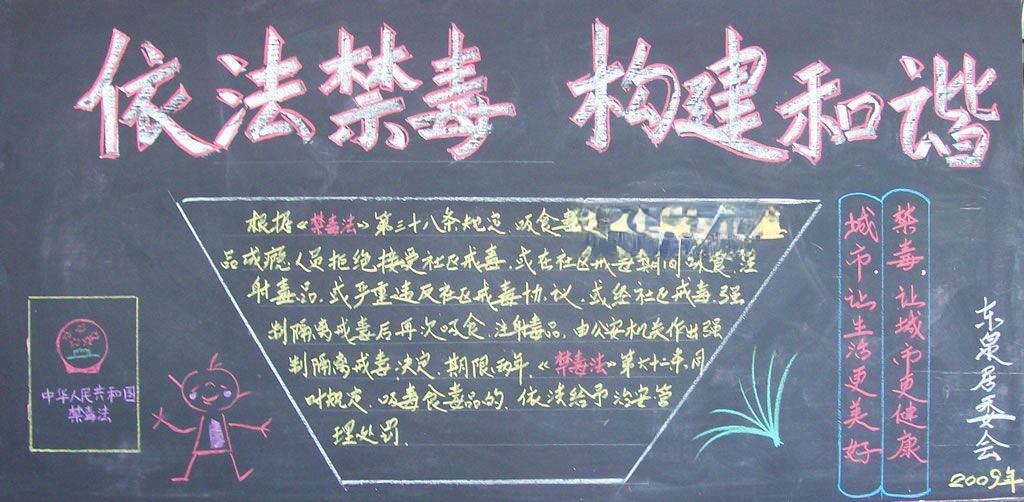 依法禁毒 构建和谐
根据《禁毒法》第三十八条规定，吸食毒
品成瘾人员拒绝接受社区戒毒，或在社区戒毒期间吸食、注
射毒品，或严重违反社区戒毒协议，或经社区戒毒、强
制隔离戒毒后再次吸食、注射毒品，由公安机关作出强
制隔离戒毒决定，期限两年。《禁毒法》第六十二条同
时规定，吸毒食毒品的，依法给予治安管
理处罚。
中华人民共和国
禁毒法
禁毒，让城市更健康
城市，让生活更美好
东泉居委会
2009年